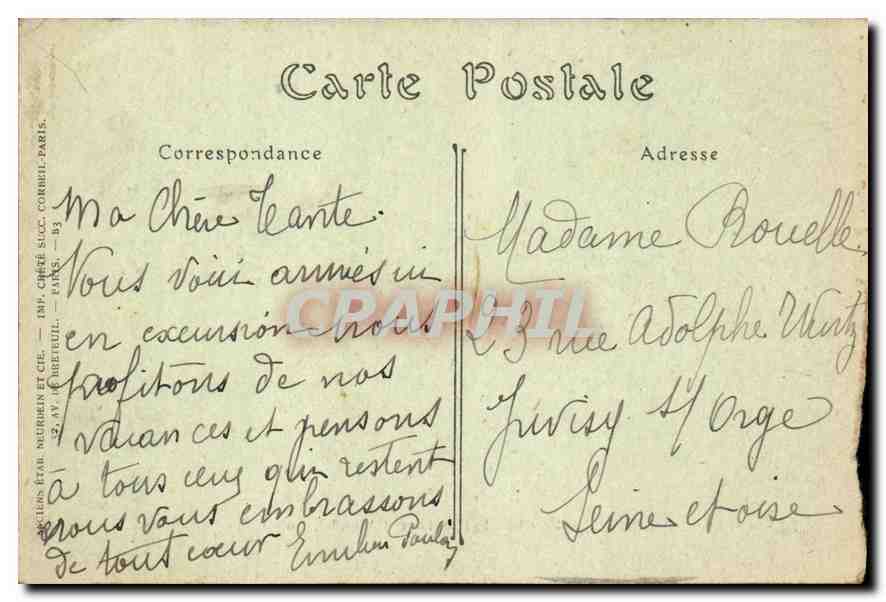 Carte Postale
Correspondance
Ma Chère Tante.
Nous voici arrivés ici
en excursion nous
profitons de nos
vacances et pensons
à tous ceux qui restent
nous vous embrassons
de tout cœur
Adresse
Madame Rouelle
23 rue Adolphe Wurtz
Juvisy s/ Orge
Seine et oise
ANCIENS ÉTAB. NEURDEIN ET CIE. — IMP. CRÉTÉ SUCC. CORBEIL-PARIS.
52, AV. DE BRETEUIL. — PARIS. — B3
CPAPHIL